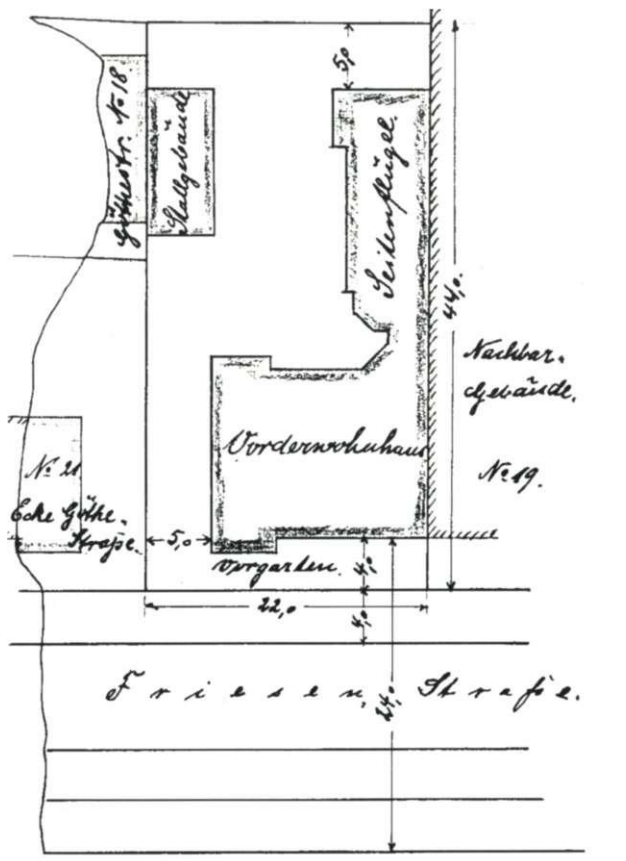 5,0
Göthestr. No 18.
Stallgebäude
Seitenflügel.
44,0.
Nachbar-
Gebäude.
No 19.
Vorderwohnhaus
No 21
Ecke Göthe-
Straße.
5,0
Vorgarten.
4,0
22,0
4,0
24,0
Friesen Straße.